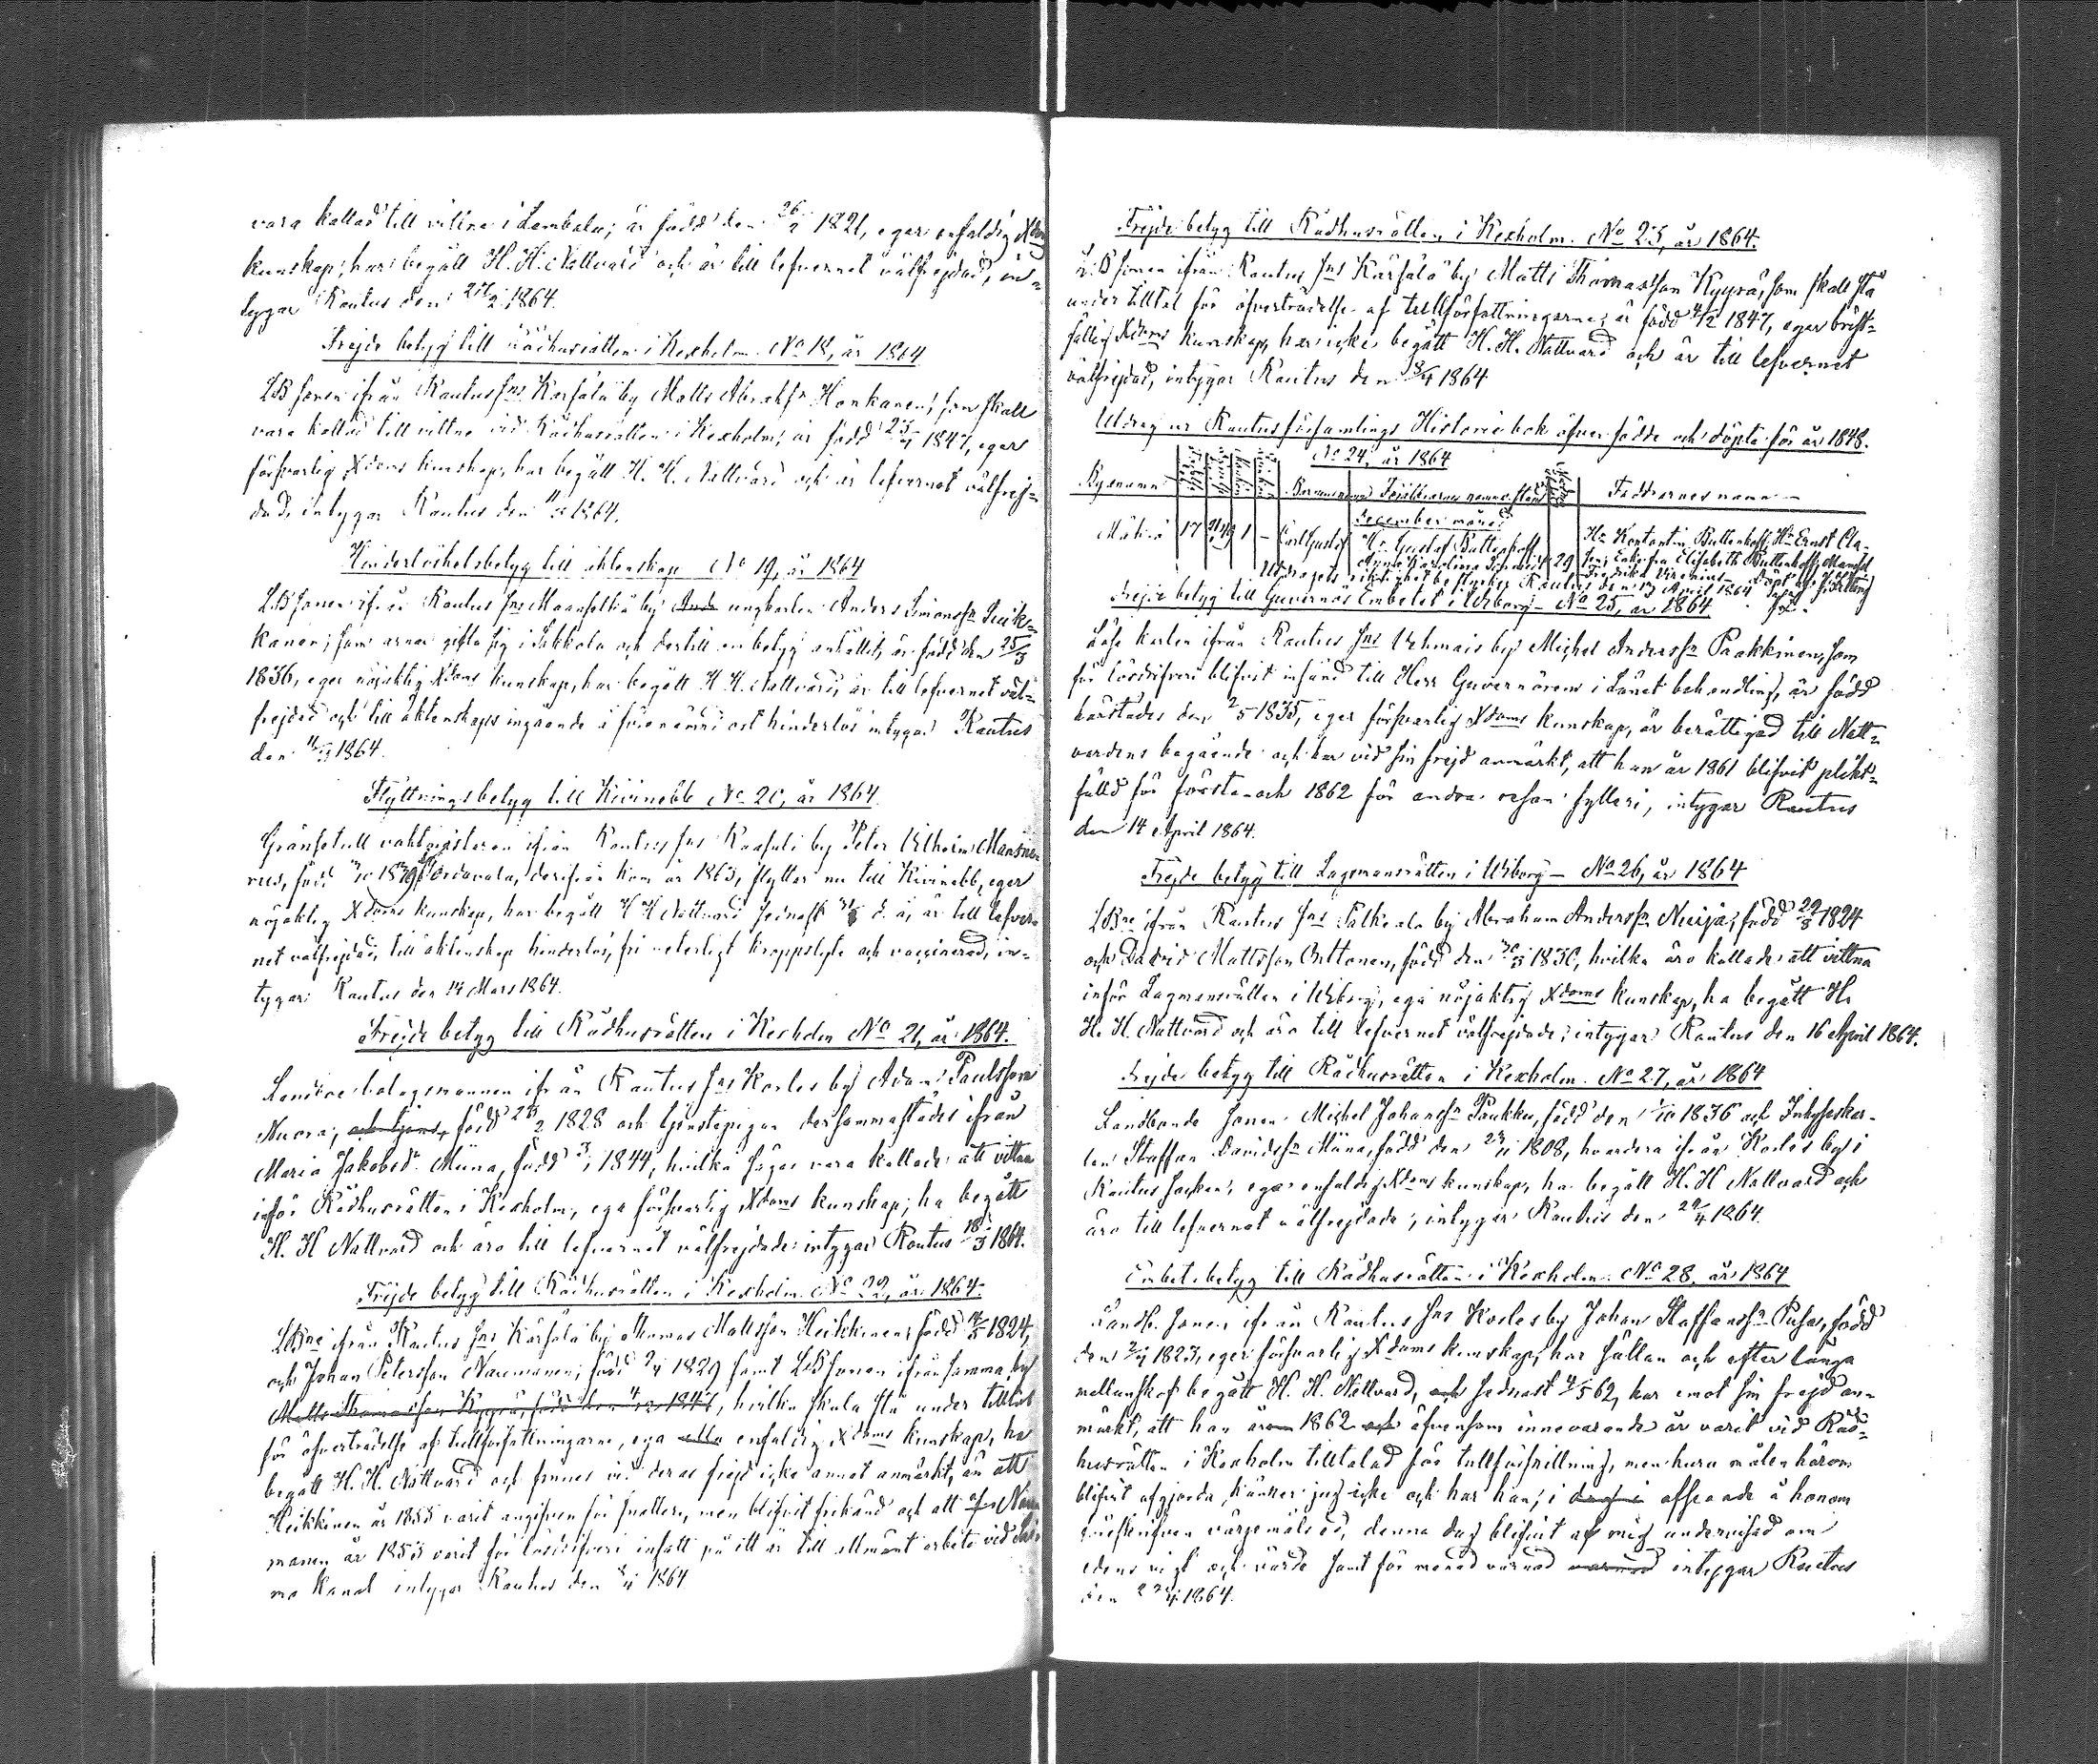 vara kallad till vittne i Lembala, är född den 26/2 1821, eger enfaldig Xdoms
kunskap, har begått H. H. Nattvard och är till lefvernet välfrejdad, in-
tygar Rautus den 27/2 1864.
Frejde betyg till Rådhusrätten i Kexholm No 18, år 1864
LBsonen ifrån Rautus Sns Karsala by Matts Abrahsn Honkanen, som skall
vara kallad till vittne vid Rådhusrätten i Kexholm, är född 23/4 1847, eger
försvarlig Xdoms kunskap, har begått H. H. Nattvard och är lefvernet välfrej-
dad, intygar Rautus den 1864.
Hinderlöshetsbetyg till äktenskap No 19, år 1864
LBsonen ifrån Rautus Sns Maanselkä by And ungkarlen Anders Simonssn
kanen, som ärnar gifta sig i Sakkola och dertill en betyg anhållit, är född den 25/3
1836, eger nöjaktig Xdoms kunskap, har begått H. H. Nattvard, är till lefvernet väl-
frejdad och till äktenskaps ingående i förenämnd ort hinderlös intygar Rautus
den 1864.
Flyttningsbetyg till Kivinebb No 20, år 1864.
Gränsetull vaktmästaren ifrån Rautus Sns Raasuli by Peter Vilhelm
rus, född 1839 Sordavala, derifrån kom år 1863, flyttar nu till Kivinebb, eger
nöjaktig Xdoms kunskap, har begått H H Nattvard sednast d. å, är till lefver-
net välfrejdad, till äktenskap hinderlös, fri veterligt kroppslyte och vaccinerad, in-
tygar Rautus den 14 Mars 1864.
Frejde betyg till Rådhusrätten i Kexholm No 21, år 1864.
bolagsmannen ifrån Rautus Sns Korles by Adam Paulsson
Nuora, och tjens, född 1828 och tjenstepigan dersammastädes ifrån
Maria Jakobsdr Müna, född 1844, hvilka säges vara kallade att vittna
inför Rådhusrätten i Kexholm, ega försvarlig Xdoms kunskap, ha begått
H. H Nattvard och äro till lefvernet välfrejdade intygar Rautus 18/3 1864.
Frejde betyg till Rådhusrätten i Kexholm No 22, år 1864.
LBne ifrån Rautus Sns Kärsälä by Thomas Mattsson Heikkinen, född 1824,
och Johan Petersson Naumanen, född 1829 samt LBsonen ifrån samma by
Matts Thomasson Kyyrä, född den 1847, hvilka skola stå under tilltal
för öfverträdelse af tullförfattningarne, ega alla enfaldig Xdoms kunskap, ha
begått H. H. Nattvard och finnes vid deras frejd icke annat anmärkt, än att
Heikkinen år 1855 varit angifven för snatteri, men blifvit frikänd och att
manen år 1853 varit för lösdrifveri insatt på ett år till allmänt arbete vid Sai-
ma kanal intygar Rautus den 1864
Frejde betyg till Rådhusrätten i Kexholm. No 23, år 1864.
LBsonen ifrån Rautus Sns Kärsälä by Matts Thomasson Kyyrä, som skall stå
under tilltal för öfverträdelse af tullförfattningarne, är född 4/12 1847, eger brist-
fällig Xdoms kunskap, har icke begått H. H. Nattvard och är till lefvernet
välfrejdad, intygar Rautus den 1864
Utdrag ur Rautus församlings Historiebok öfver födde och döpte för år 1848.
No 24, år 1864
Bynamn Barnens namn Föräldrarnes namn o stånd Faddrarnes namn
December månad
Mäkrä 17 1 – Carl Gustaf Hr Gustaf Buttenhoff Hr Konstantin Buttenhoff, Hr Ernst Cla-
Anna Karolina 29 Enkefru Elisabeth Buttenhoff, Mamsell
Fredrika
Utdragets riktighet bestyrker Rautus den 13 April 1864
Frejde betyg till Guvernörs Embetet i Wiborg – No 25, år 1864
Löse karlen ifrån Rautus Sns Vehmais by Michel Anderssn Paakkinen, som
för lösdrifveri blifvit insänd till Herr Guvernörens i Länet behandling, är född
härstädes den 2/5 1835, eger försvarlig Xdoms kunskap, är berättigad till Natt-
vardens begående och har vid sin frejd anmärkt, att han år 1861 blifvit plikt-
fälld för första och 1862 för andra resan fylleri, intygar Rautus
den 14 April 1864.
Frejde betyg till Lagmansrätten i Wiborg – No 26, år 1864
LBne ifrån Rautus Sns Palkeala by Abraham Anderssn född 1824
och David Mattsson Outtonen, född den 1830, hvilka äro kallade att vittna
inför Lagmansrätten i Wiborg, ega nöjaktig Xdoms kunskap, ha begått H.
H. H. Nattvard och äro till lefvernet välfrejdade, intygar Rautus den 16 April 1864.
Frejde betyg till Rådhusrätten i Kexholm. No 27, år 1864
Landbonde sonen Michel Johanssn Paukku, född den 1/10 1836 och Inhyseskar-
len Staffan Davidssn Müna, född den 1808, hvardera ifrån Korles by i
Rautus socken, ega enfaldig Xdoms kunskap, ha begått H. H Nattvard och
äro till lefvernet välfrejdade, intygar Rautus den 1864.
Embetsbetyg till Rådhusrätten i Kexholm. No 28, år 1864
Landb. sonen ifrån Rautus Sns Korles by Johan Staffanssn född
den 1823, eger försvarlig Xdoms kunskap, har sällan och efter långa
mellanskof begått H. H. Nattvard, och sednast 4/5 62, har emot sin frejd an-
märkt, att han åren 1862 och äfvensom innevarande år varit vid Råd-
husrätten i Kexholm tilltalad för tullförsnillning, men huru målen härom
blifvit afgjorda, känner jag icke och har han, i afseende å honom
föreskrifven värjemåls ed, denna dag blifvit af mig undervisad om
edens vigt och värde samt för mened varnad intygar Rautus
den 1864.